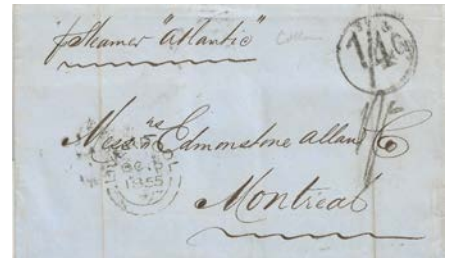 p Steamer "Atlantic"
1/4 Cy
Messrs Edmonstone Allan & Co
1855
Montreal